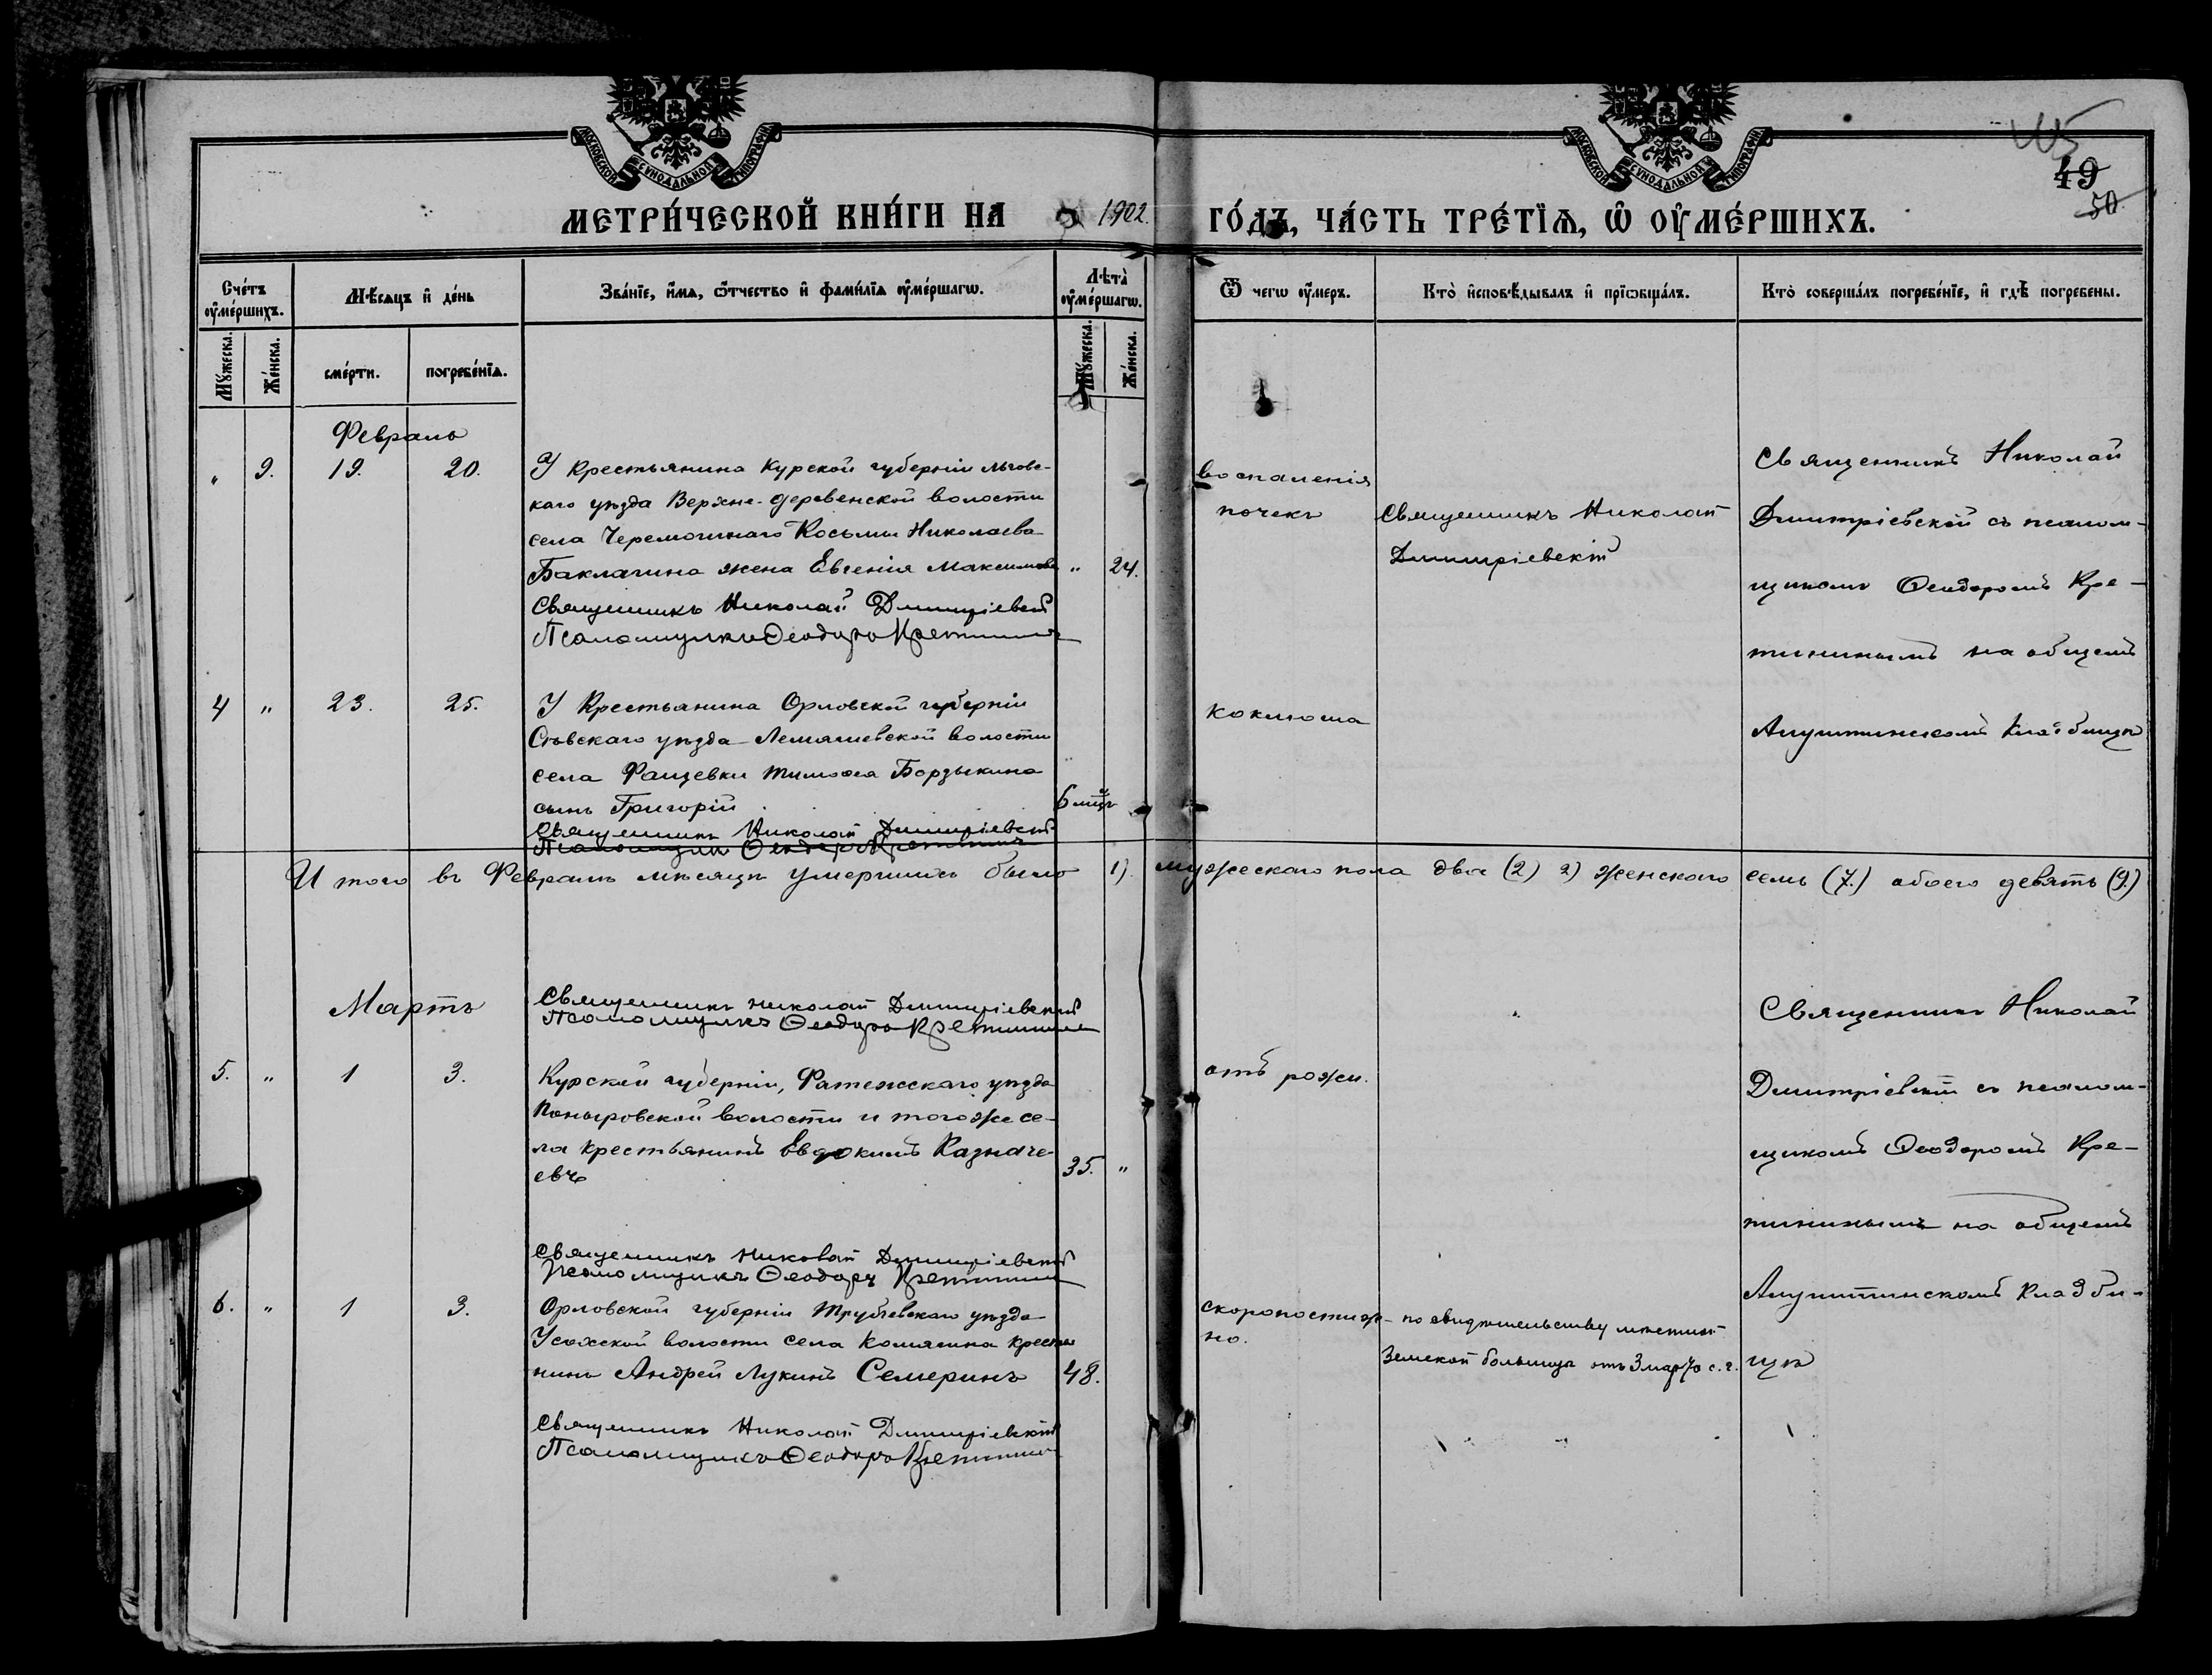 МОСКОВСКОЙ СѴНОДАЛЬНОЙ ТИПОГРАФІИ
МОСКОВСКОЙ СѴНОДАЛЬНОЙ ТИПОГРАФІИ
115
49
50
МЕТРИ́ЧЕСКОЙ КНИ́ГИ НА 1902. ГО́ДЪ, ЧА́СТЬ ТРЕ́ТЇѦ, Ѡ ОУМЕ́РШИХЪ.
Сче́тъ оуме́ршихъ.
Мѣ́сѧцъ и де́нь
Зва́нїе, и́мѧ, ѻ́тчество и фами́лїѧ оуме́ршагѡ.
Лѣта̀ оуме́ршагѡ.
Ѿ чегѡ оу́меръ.
Кто̀ исповѣ́дывалъ и прїѡбща́лъ.
Кто̀ соверша́лъ погребе́нїе, и гдѣ̀ погребены.
Мꙋжеска.
Же́нска.
сме́рти.
погребе́нїѧ.
Мꙋжеска.
Же́нска.
Февраль
„ 9. 19. 20.
У крестьянина Курской губерніи Льгов-
скаго уѣзда Верхне-деревенской волости
села Черемошнаго Косьмы Николаева
Баклагина жена Евгенія Максимова „ 24.
Священникъ Николай Дмитріевскій
Псаломщикъ Ѳеодоръ Кретининъ
воспаленія
почекъ
Священникъ Николай
Дмитріевскій
Священникъ Николай
Дмитріевскій съ псалом-
щикомъ Ѳеодоромъ Кре-
тининымъ на общемъ
Алуштинскомъ кладбищѣ
4 „ 23. 25.
У Крестьянина Орловской губерніи
Сѣвскаго уѣзда волости
села Фащевки Тимоѳея Бордыкина
сынъ Григорій 6 мцъ
Священникъ Николай Дмитріевскій
Псаломщикъ Ѳеодоръ Кретининъ
коклюша
Итого въ Февралѣ мѣсяцѣ умершихъ было 1). мужескаго пола два (2) 2) женскаго семь (7.) обоего девять (9.)
Мартъ
Священникъ Николай Дмитріевскій
Псаломщикъ Ѳеодоръ Кретининъ
5. „ 1 3.
Курской губерніи, Фатежскаго уѣзда
Поныровской волости и того же се-
ла крестьянинъ Евдокимъ Казначе-
евъ 35. „
отъ рожи.
Священникъ Николай
Дмитріевскій съ псалом-
щикомъ Ѳеодоромъ Кре-
тининымъ на общемъ
Алуштинскомъ кладби-
щѣ
Священникъ Николай Дмитріевскій
Псаломщикъ Ѳеодоръ Кретининъ
6. „ 1 3.
Орловской губерніи Трубчевскаго уѣзда
Усохской волости села Комягина крестья
нинъ Андрей Лукинъ Семеринъ 48.
Священникъ Николай Дмитріевскій
Псаломщикъ Ѳеодоръ Кретининъ
скоропостиж-
но.
по свидѣтельству мѣстной
Земской больницы отъ 3 марта с. г.